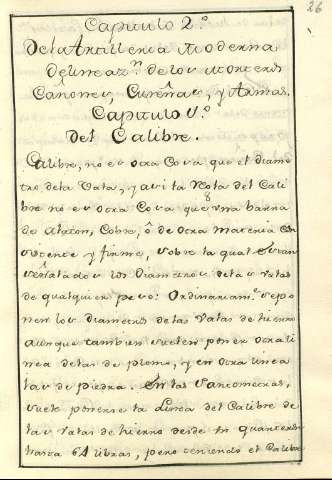 26
Capitulo 2.º
De la Artilleria Moderna
Delineaz.n de los Morteros
Cañones, Cureñas, y Armas.
Capitulo V.º
Del Calibre.
Calibre, no es otra Cosa que el Diame
tro dela Vala, y asi la Rota del Cali
bre no es otra Cosa que una barra
de Laton, Cobre, ô de otra materia con
sistente y firme, sobre la qual estan
señalados los Diametros delas Valas
de qualquier peso: Ordinariam.e se po
nen los diametros de las Valas de hierro
aunque tambien suelen poner otra li
nea de las de plomo, y en otra linea
las de piedra. En las Pantometras,
suele ponerse la Linea del Calibre de
las Valas de hierro desde un quarteron
hasta 64 libras, pero teniendo el Calibre